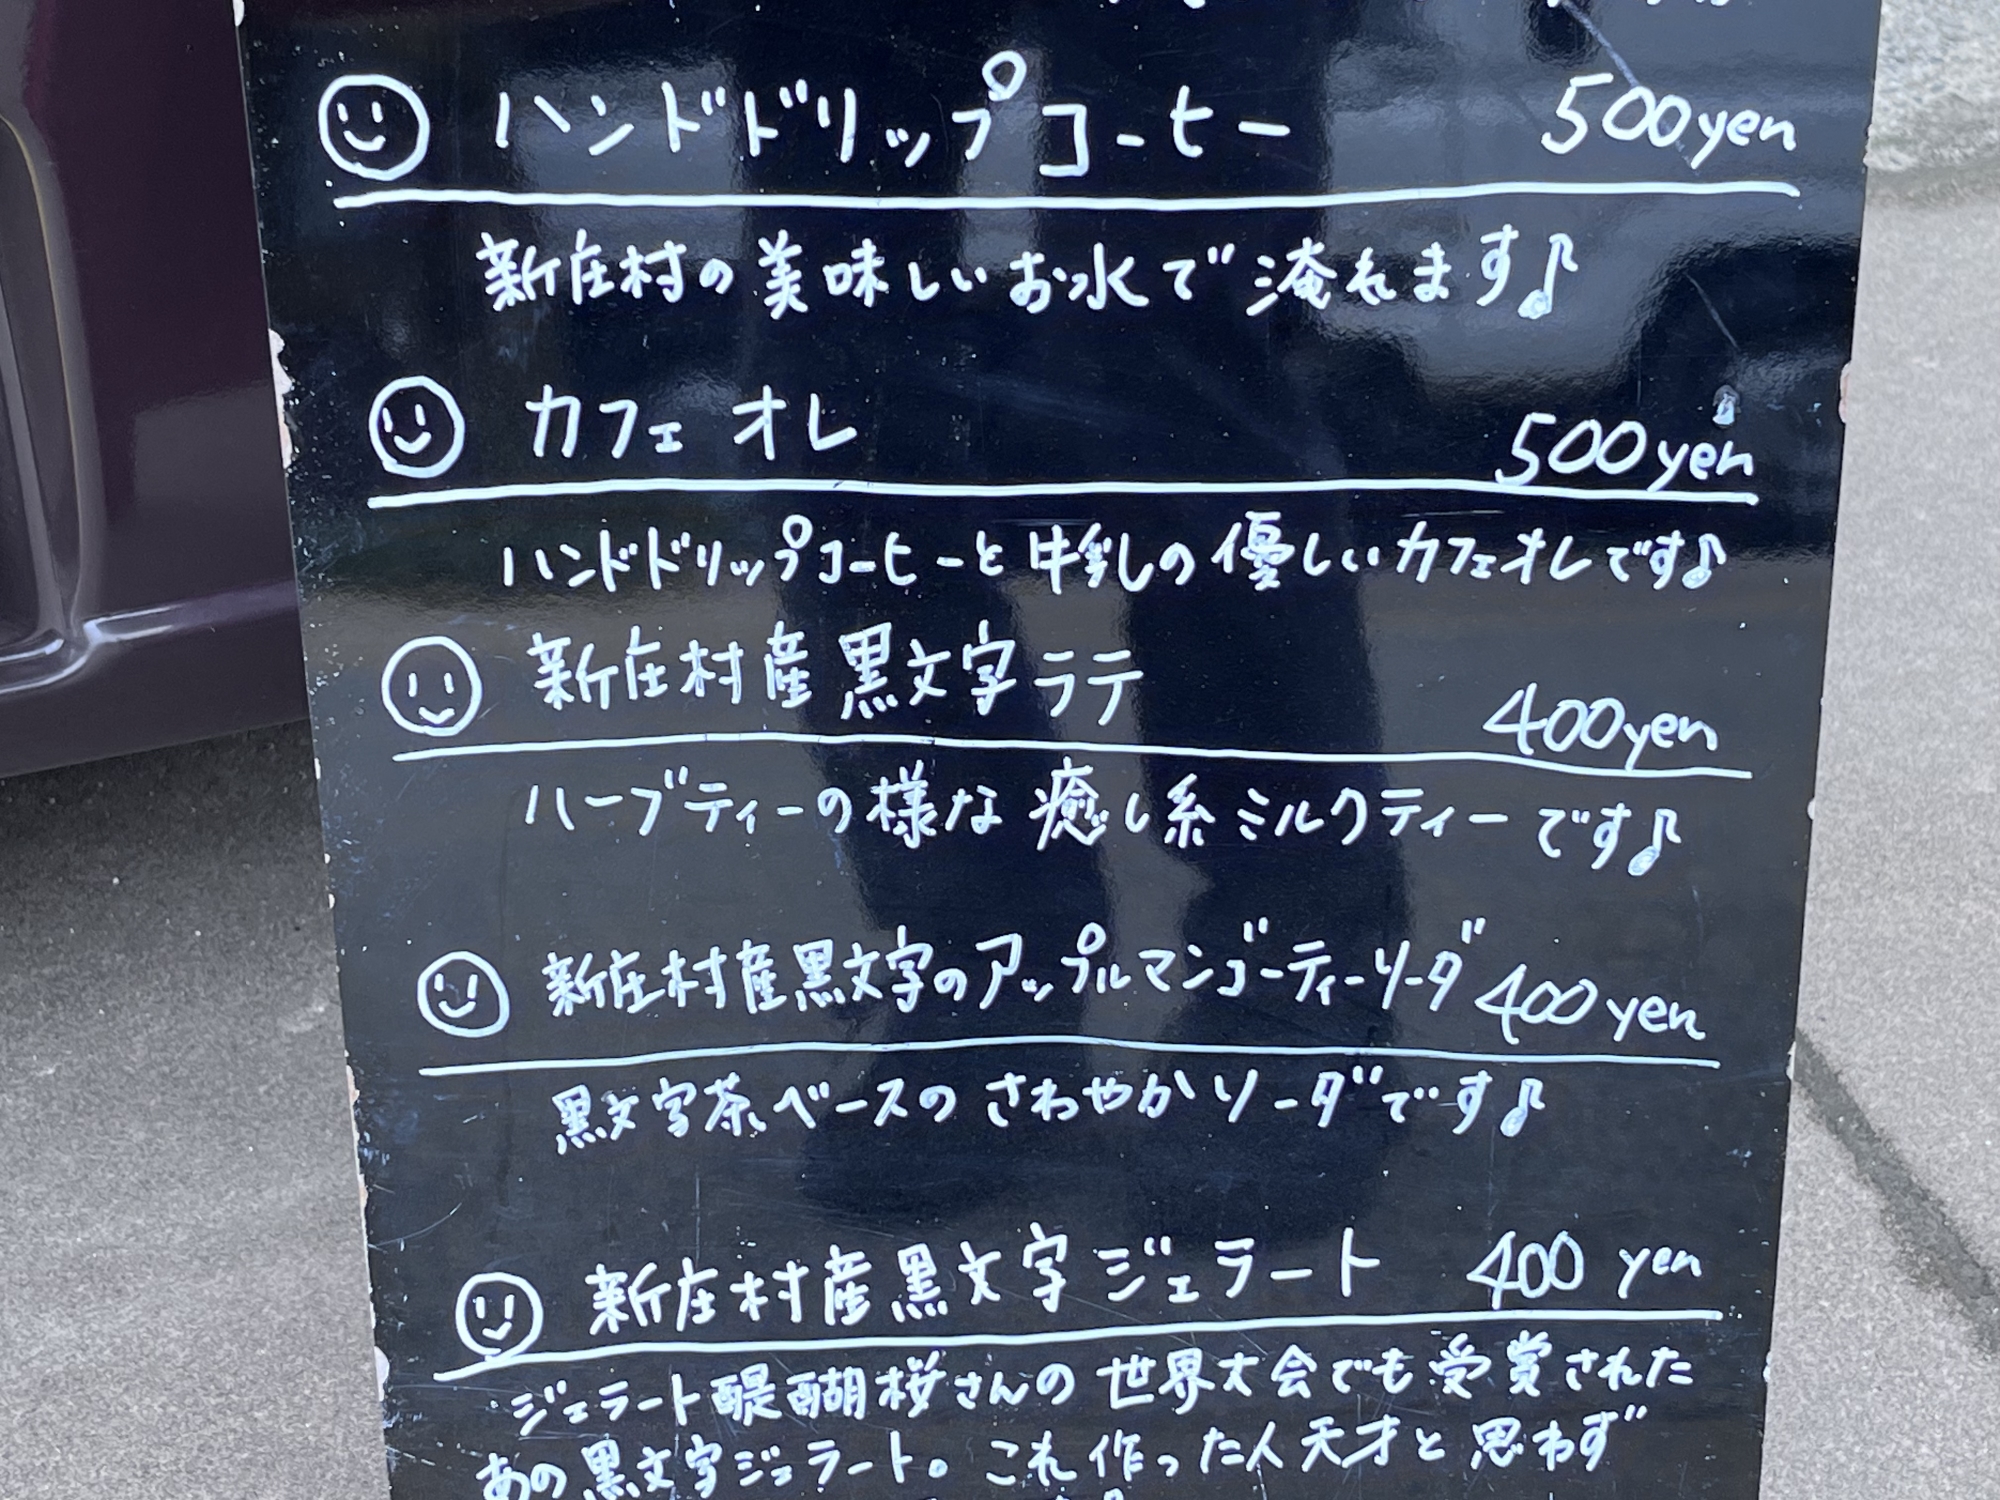 ハンドドリップコーヒー 500yen
新庄村の美味しいお水で淹れます♪
カフェオレ 500yen
ハンドドリップコーヒーと牛乳の優しいカフェオレです♪
新庄村産黒文字ラテ 400yen
ハーブティーの様な癒し系ミルクティーです♪
新庄村産黒文字のアップルマンゴーティーソーダ 400yen
黒文字茶ベースのさわやかソーダです♪
新庄村産黒文字ジェラート 400yen
ジェラート醍醐桜さんの世界大会でも受賞された
あの黒文字ジェラート。これ作った人天才と思わず